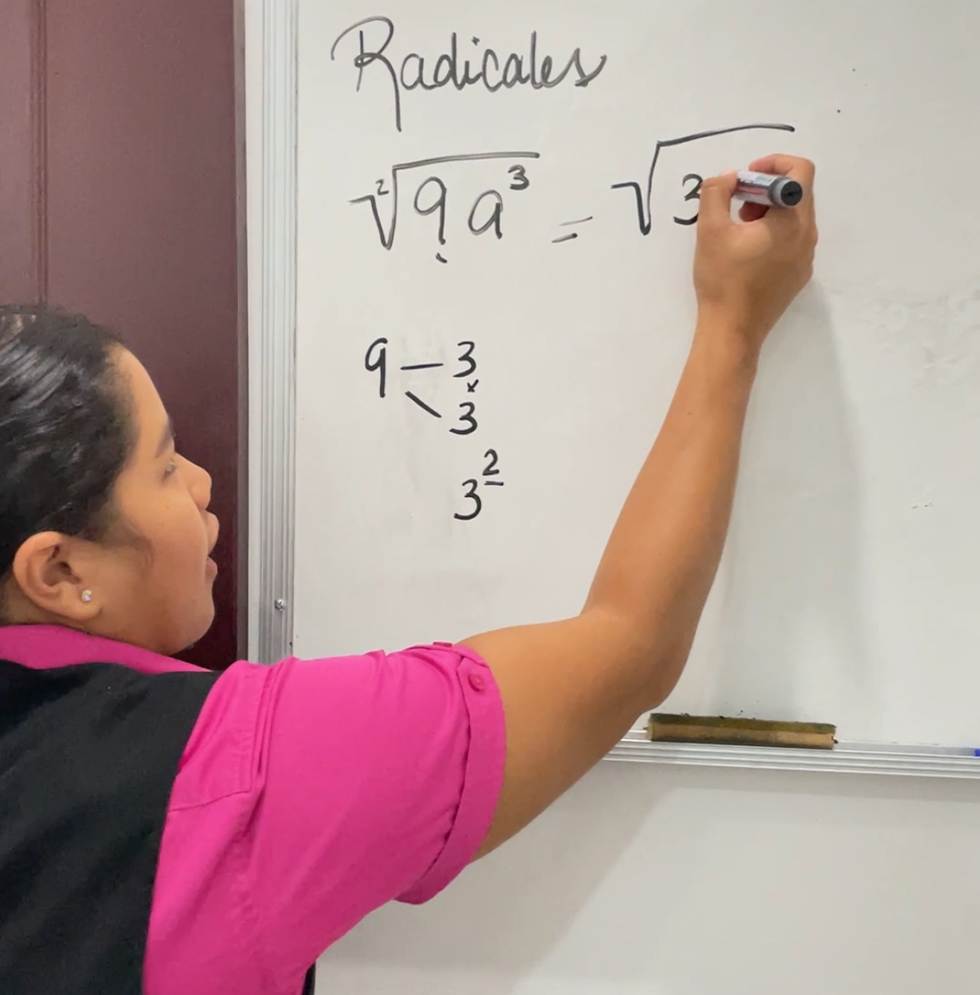 Radicales
²√9a³ = √3
9 — 3
\ x
3
3²